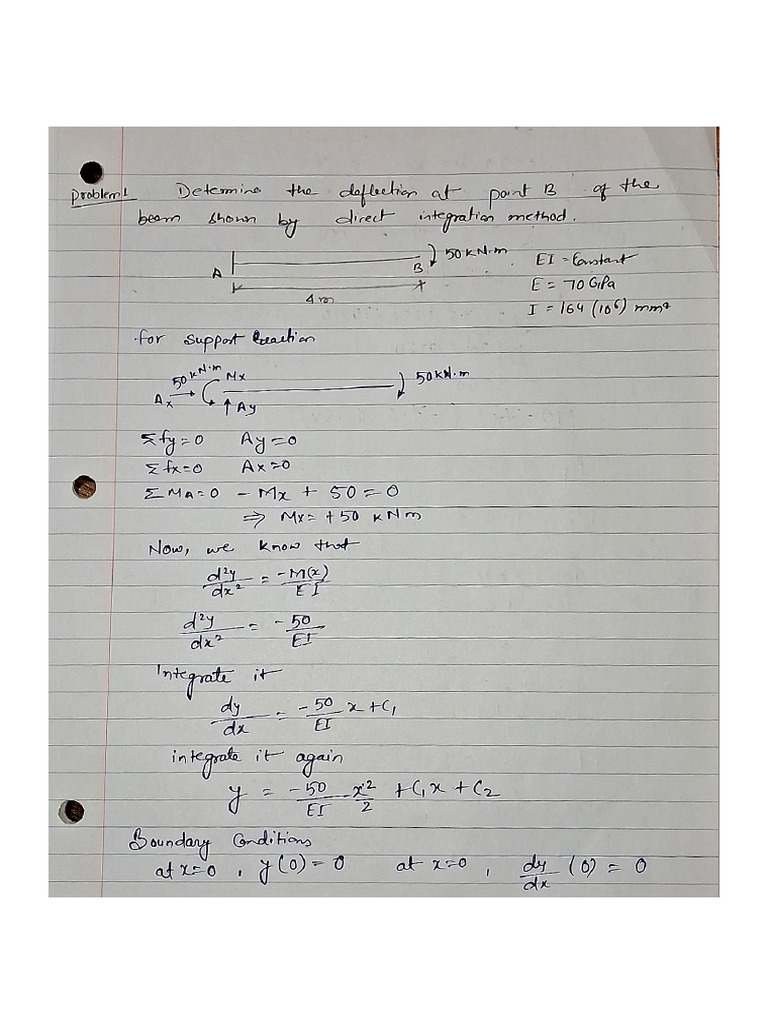 Problem 1 Determine the deflection at point B of the
beam shown by direct integration method.
50 kN.m
A B
4 m
EI = Constant
E = 70 GPa
I = 164 (10⁶) mm⁴
for support Reaction
50 kN.m Mx 50 kN.m
Ax Ay
Σfy=0 Ay=0
Σfx=0 Ax=0
ΣMA=0 -Mx + 50 = 0
⇒ Mx = +50 kNm
Now, we know that
d²y/dx² = -M(x)/EI
d²y/dx² = -50/EI
Integrate it
dy/dx = -50/EI x + C₁
integrate it again
y = -50/EI x²/2 + C₁x + C₂
Boundary Conditions
at x=0, y(0) = 0 at x=0, dy/dx (0) = 0